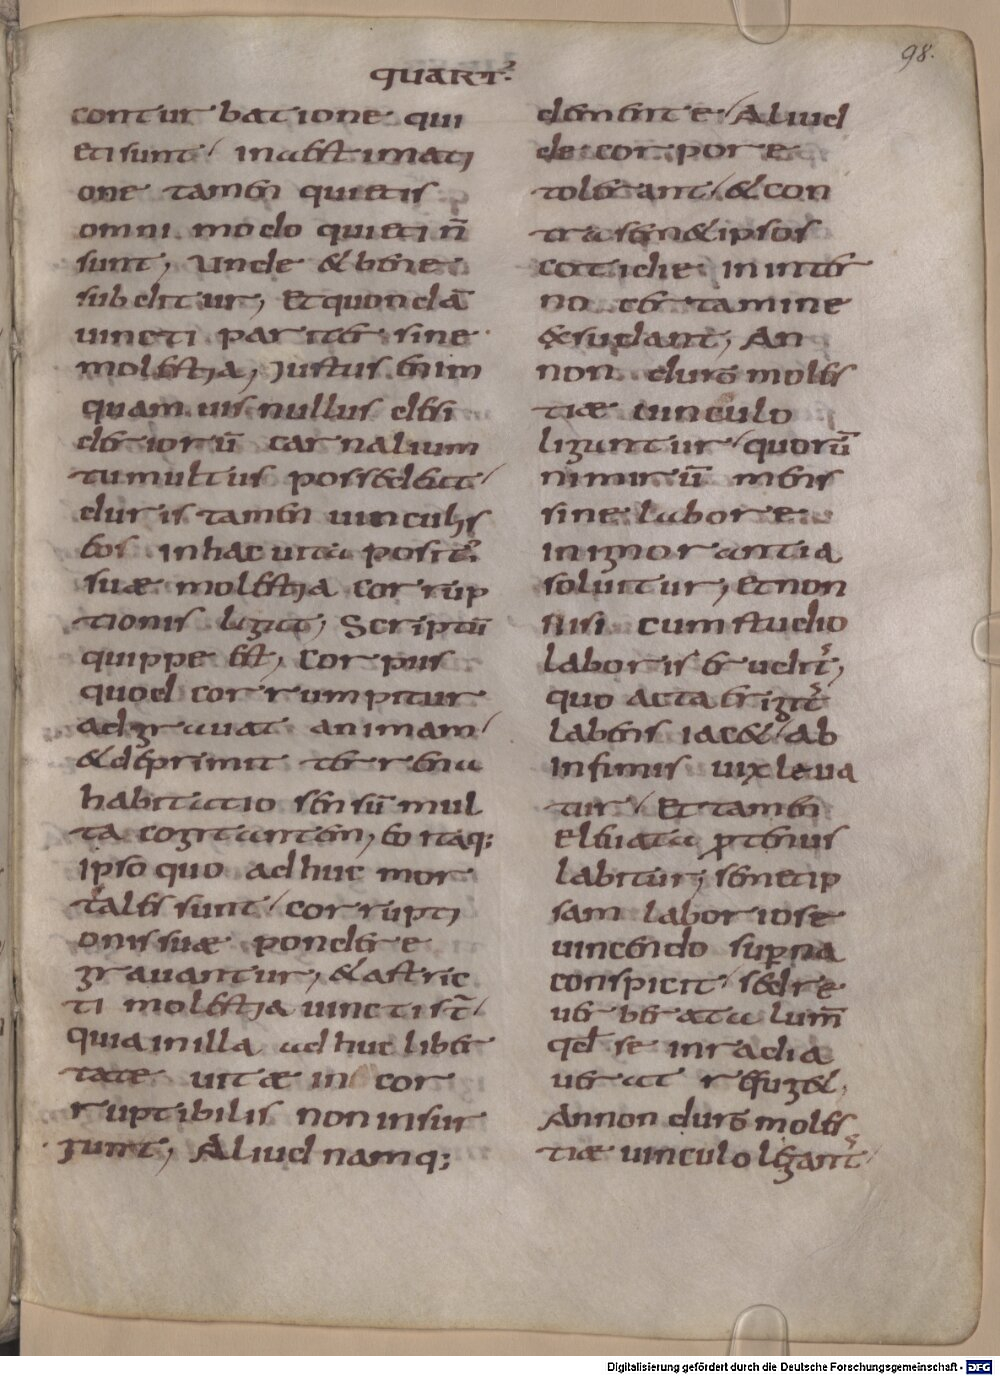 QUART᾽
98.
conturbatione qui
eti sunt, in aestimati
one tamen quietis
omni modo quieti n̄
sunt, Unde & bene
subditur, et quondā
uincti pariter sine
molestia, Justus enim
quamuis nullus desi
deriorū carnalium
tumultus possedeat
duris tamen uinculis
eos in hac uita posit᾽
suae molestia corrup
tionis ligat, Scriptū
quippe est, corpus
quod corrumpitur
adgrauat animam
& deprimit terrena
habitatio sensū mul
ta cogitantem, eo itaq;
ipso quo adhuc mor
tales sunt, corrupti
onis suae pondere
grauantur, & astric
ti molestia uincti st̄
quia in illa adhuc liber
tate uitae in cor
ruptibilis non insur
gunt, Aliud namq;
de mente, Aliud
de corpore
tolerant, & con
tra sem&ipsos
cotidie in inter
no certamine
& sudant, An
non durae moles
tiae uinculo
ligantur, quorū
nimirū mens
sine labore
in ignorantia
soluitur, et non
nisi cum studio
laboris erudit᾽,
quo acta erigit᾽
labens iac&, Ab
infimis uix leua
tur, Et tamen
Eleuata protenus
labitur, semetip
sam laboriose
uincendo superna
conspicit, sed re
uerberata lum̄
qd̄ se inradia
uerat refug&,
Annon durae moles
tiae uinculo ligant᾽
Digitalisierung gefördert durch die Deutsche Forschungsgemeinschaft - DFG